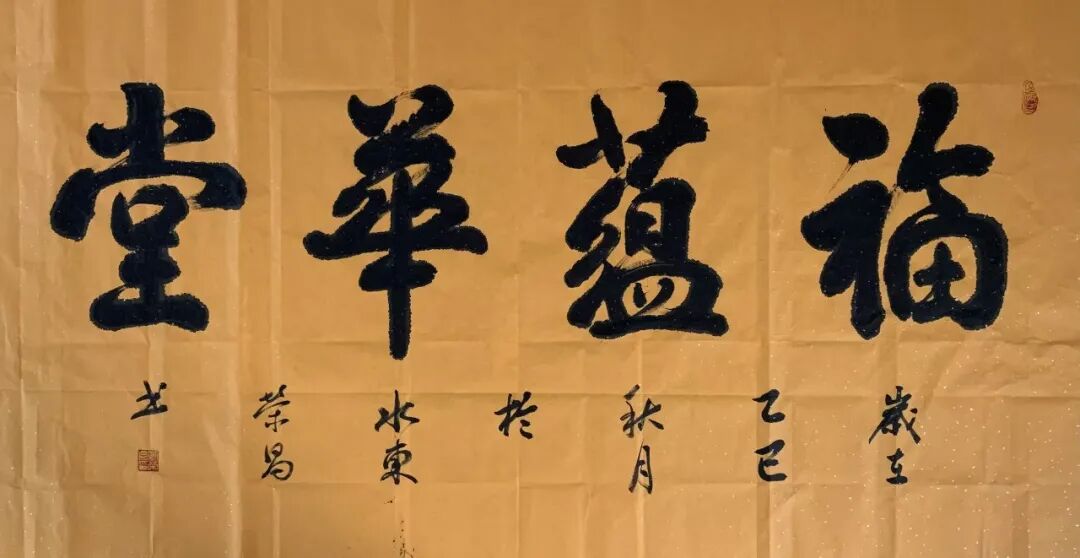 福蘊華堂
歲在
乙巳
秋月
於
水東
榮昌
书